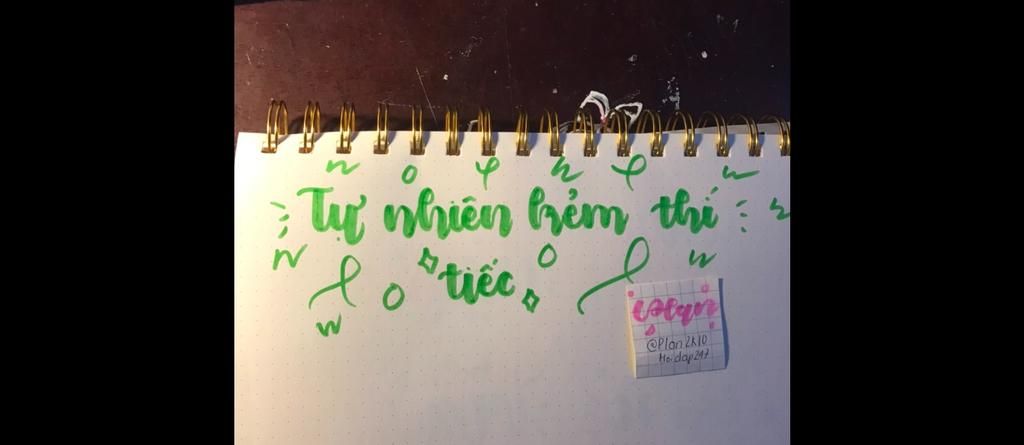 Tự nhiên kẻm thí
tiếc
Plan
@Plan2k10
Hoidap247